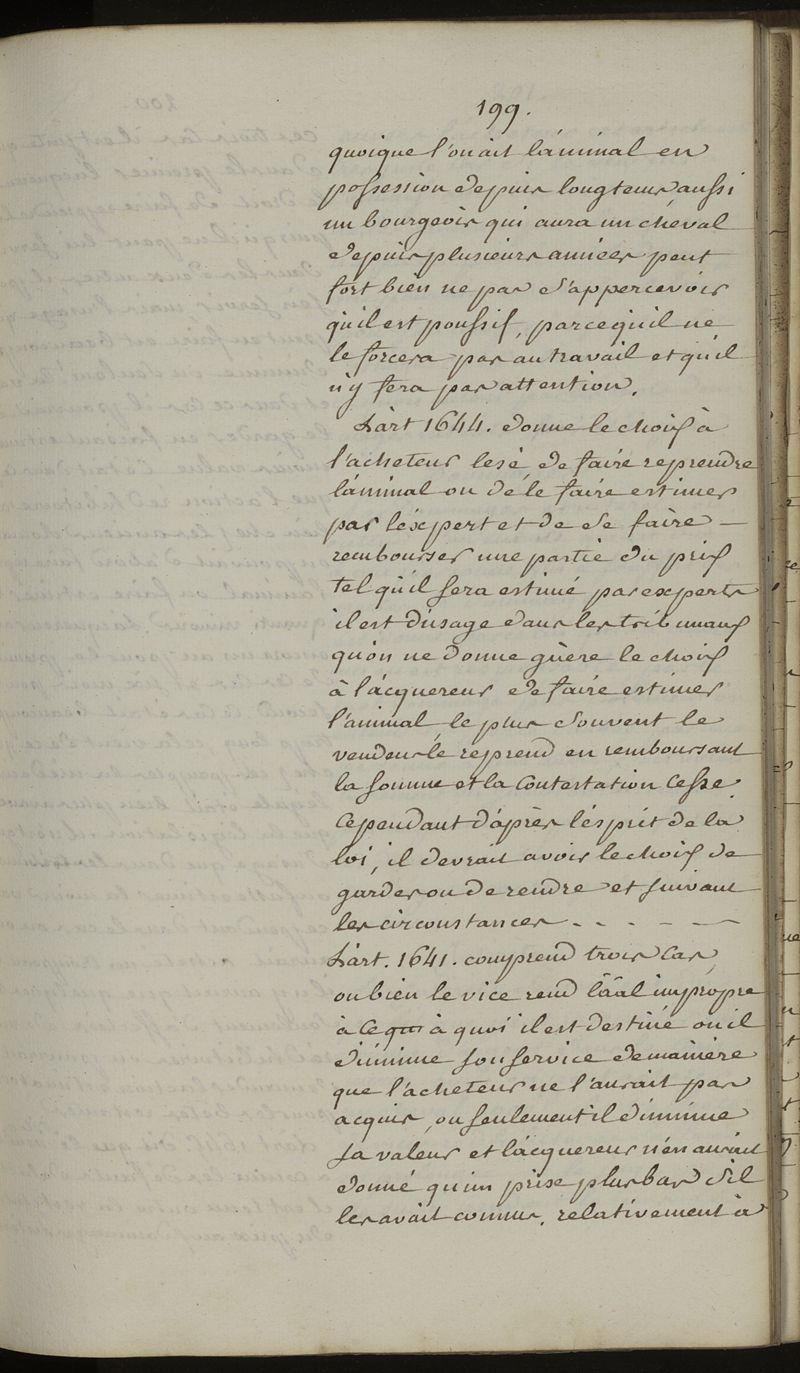 199.
quoique l'on ait l'animal en
possession depuis longtems aussi
un bourgeois qui aura un cheval
depuis plusieurs années peut
fort bien ne pas s'appercevoir
qu'il est poussif, parcequ'il ne
le forcera pas au travail et qu'il
n'y fera pas attention.
L'art 1644. donne le choix à
l'acheteur lesé de faire reprendre
l'animal ou de le faire estimer
par l'expert et de se faire —
rembourser une partie du prix
tel qu'il sera estimé par experts
il est d'usage dans les tribunaux
qu'on ne donne guère le choix
à l'acquereur de faire estimer
l'animal le plus souvent le
vendeur le reprend en remboursant
la somme et la contestation cesse
cependant d'après l'esprit de la
loi, il devrait avoir le choix de
garder ou de rendre et suivant
les circonstances - - - - - —
L'art. 1641. comprend trois cas,
ou bien le vice rend l'âal impropre
à ce qui à quoi il est destiné ou il
diminue son service de manière
que l'acheteur ne l'aurait pas
acquis, ou seulement il diminue
sa valeur et l'acquereur n'en aurait
donné qu'un prix plus bas s'il
les avait connus, relativement à